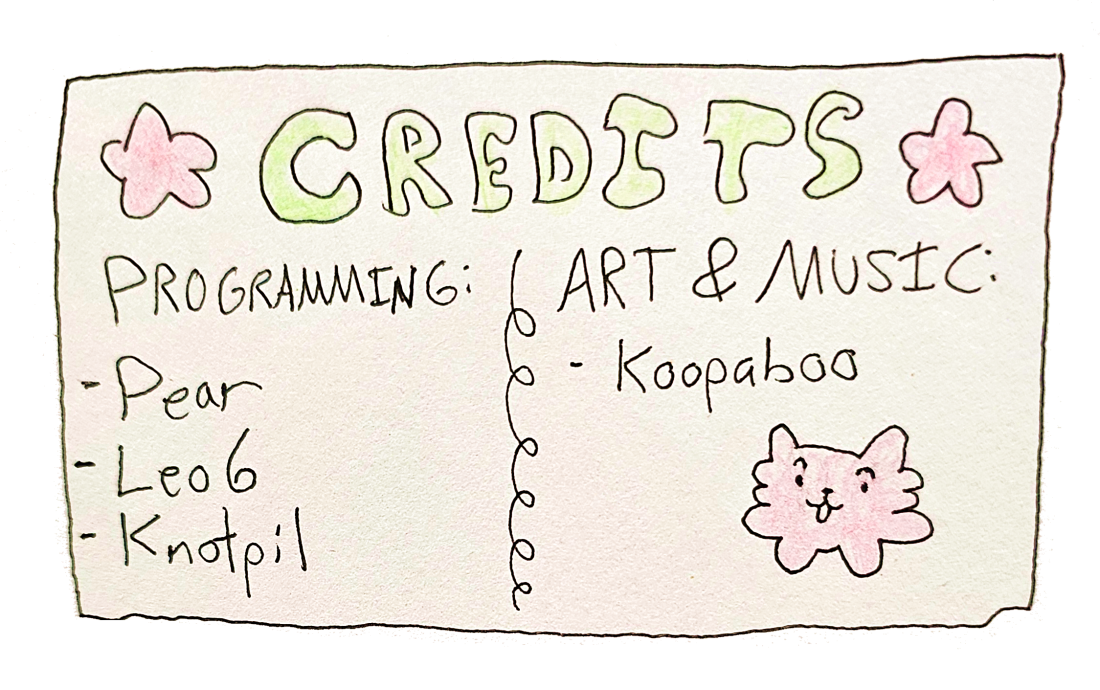 CREDITS
PROGRAMMING:
- Pear
- Leo6
- Knotpil
ART & MUSIC:
- Koopaboo